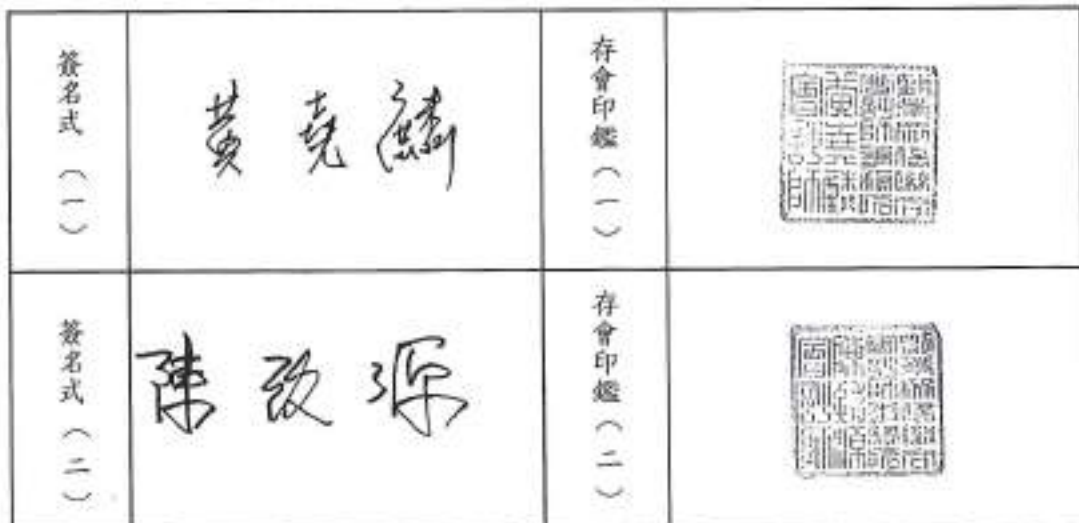 簽名式（一）
黃堯麟
存會印鑑（一）
黃堯麟
會計師
簽名式（二）
陳政源
存會印鑑（二）